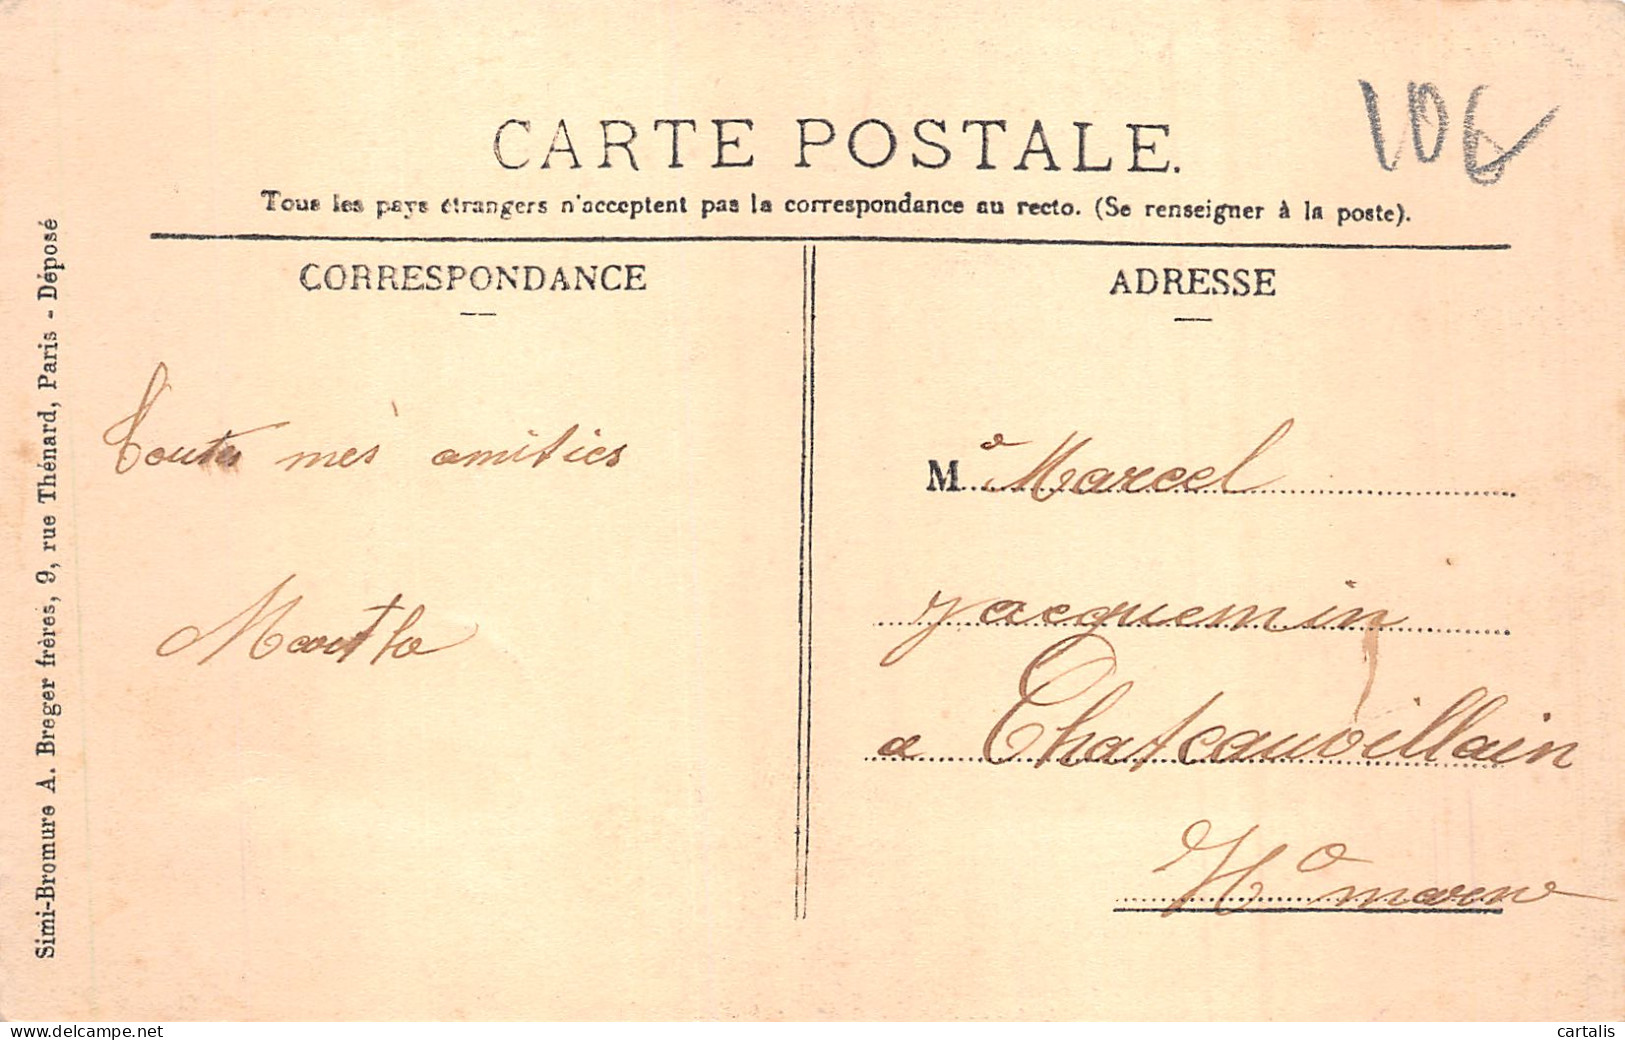 106
CARTE POSTALE.
Tous les pays étrangers n'acceptent pas la correspondance au recto. (Se renseigner à la poste).
CORRESPONDANCE
ADRESSE
Toutes mes amitiés
Marthe
M a Marcel
Jacquemin
a Chateauvillain
Hte marne
Simi-Bromure A. Breger frères, 9, rue Thénard, Paris - Déposé
delcampe.net
cartalis